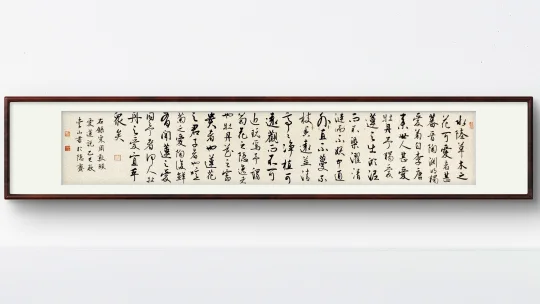 水陸草木之
花可愛者甚
蕃晉陶淵明獨
愛菊自李唐
来世人甚愛
牡丹予獨愛
蓮之出淤泥
而不染濯清
漣而不妖中通
外直不蔓不
枝香遠益清
亭亭淨植可
遠觀而不可
褻玩焉予謂
菊花之隱逸者
也牡丹花之富
貴者也蓮花
之君子者也噫
菊之愛陶後鮮
有聞蓮之愛
同予者何人牡
丹之愛宜乎
眾矣
右錄宋周敦頤
愛蓮說